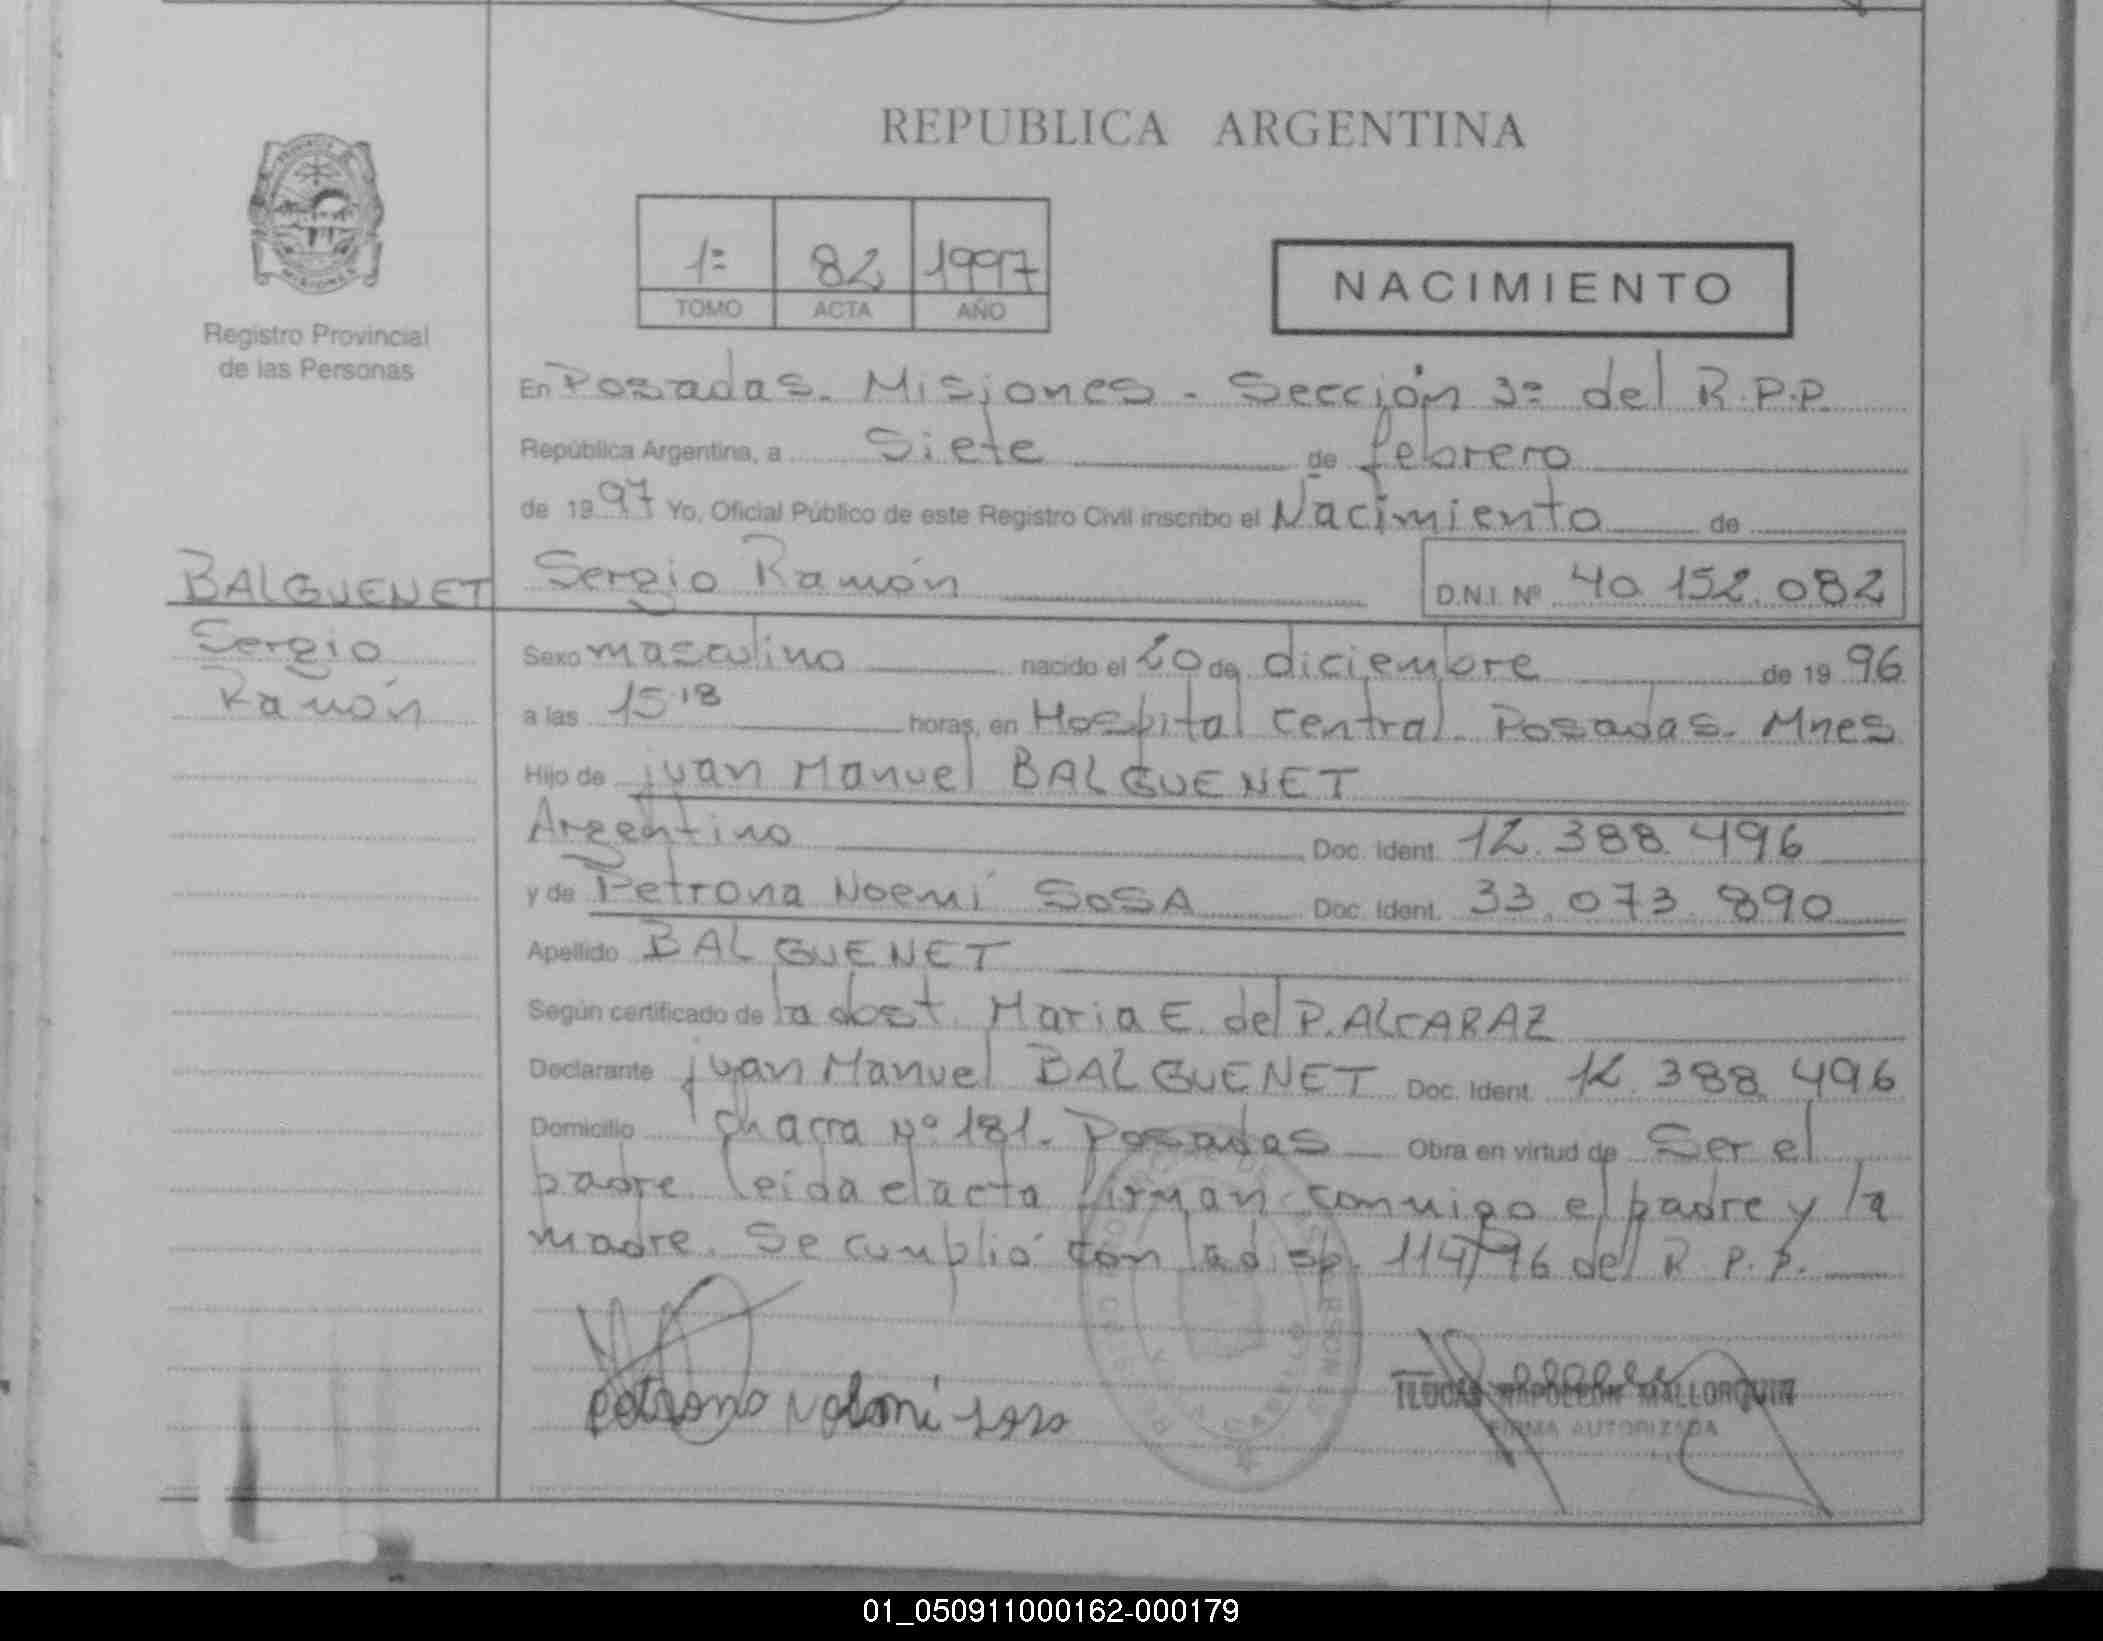 REPUBLICA ARGENTINA
1º 82 1997
TOMO ACTA AÑO
NACIMIENTO
Registro Provincial
de las Personas
En Posadas. Misiones - Sección 3º del R.P.P.
República Argentina, a Siete de febrero
de 1997 Yo, Oficial Público de este Registro Civil inscribo el Nacimiento de
BALGUENET Sergio Ramón D.N.I. Nº 40.152.082
Sergio
Ramón
Sexo masculino nacido el 20 de diciembre de 1996
a las 15.18 horas, en Hospital Central. Posadas. Mnes
Hijo de Juan Manuel BALGUENET
Argentino Doc. Ident. 12.388.496
y de Petrona Noemí SOSA Doc. Ident. 33.073.890
Apellido BALGUENET
Según certificado de la obst. Maria E. del P. ALCARAZ
Declarante Juan Manuel BALGUENET Doc. Ident. 12.388.496
Domicilio Chacra Nº 181. Posadas Obra en virtud de Ser el
padre leida el acta firman conmigo el padre y la
madre. Se cumplió con la disp. 114/96 del R.P.P.
MALLORQUIN
FIRMA AUTORIZADA
01_050911000162-000179